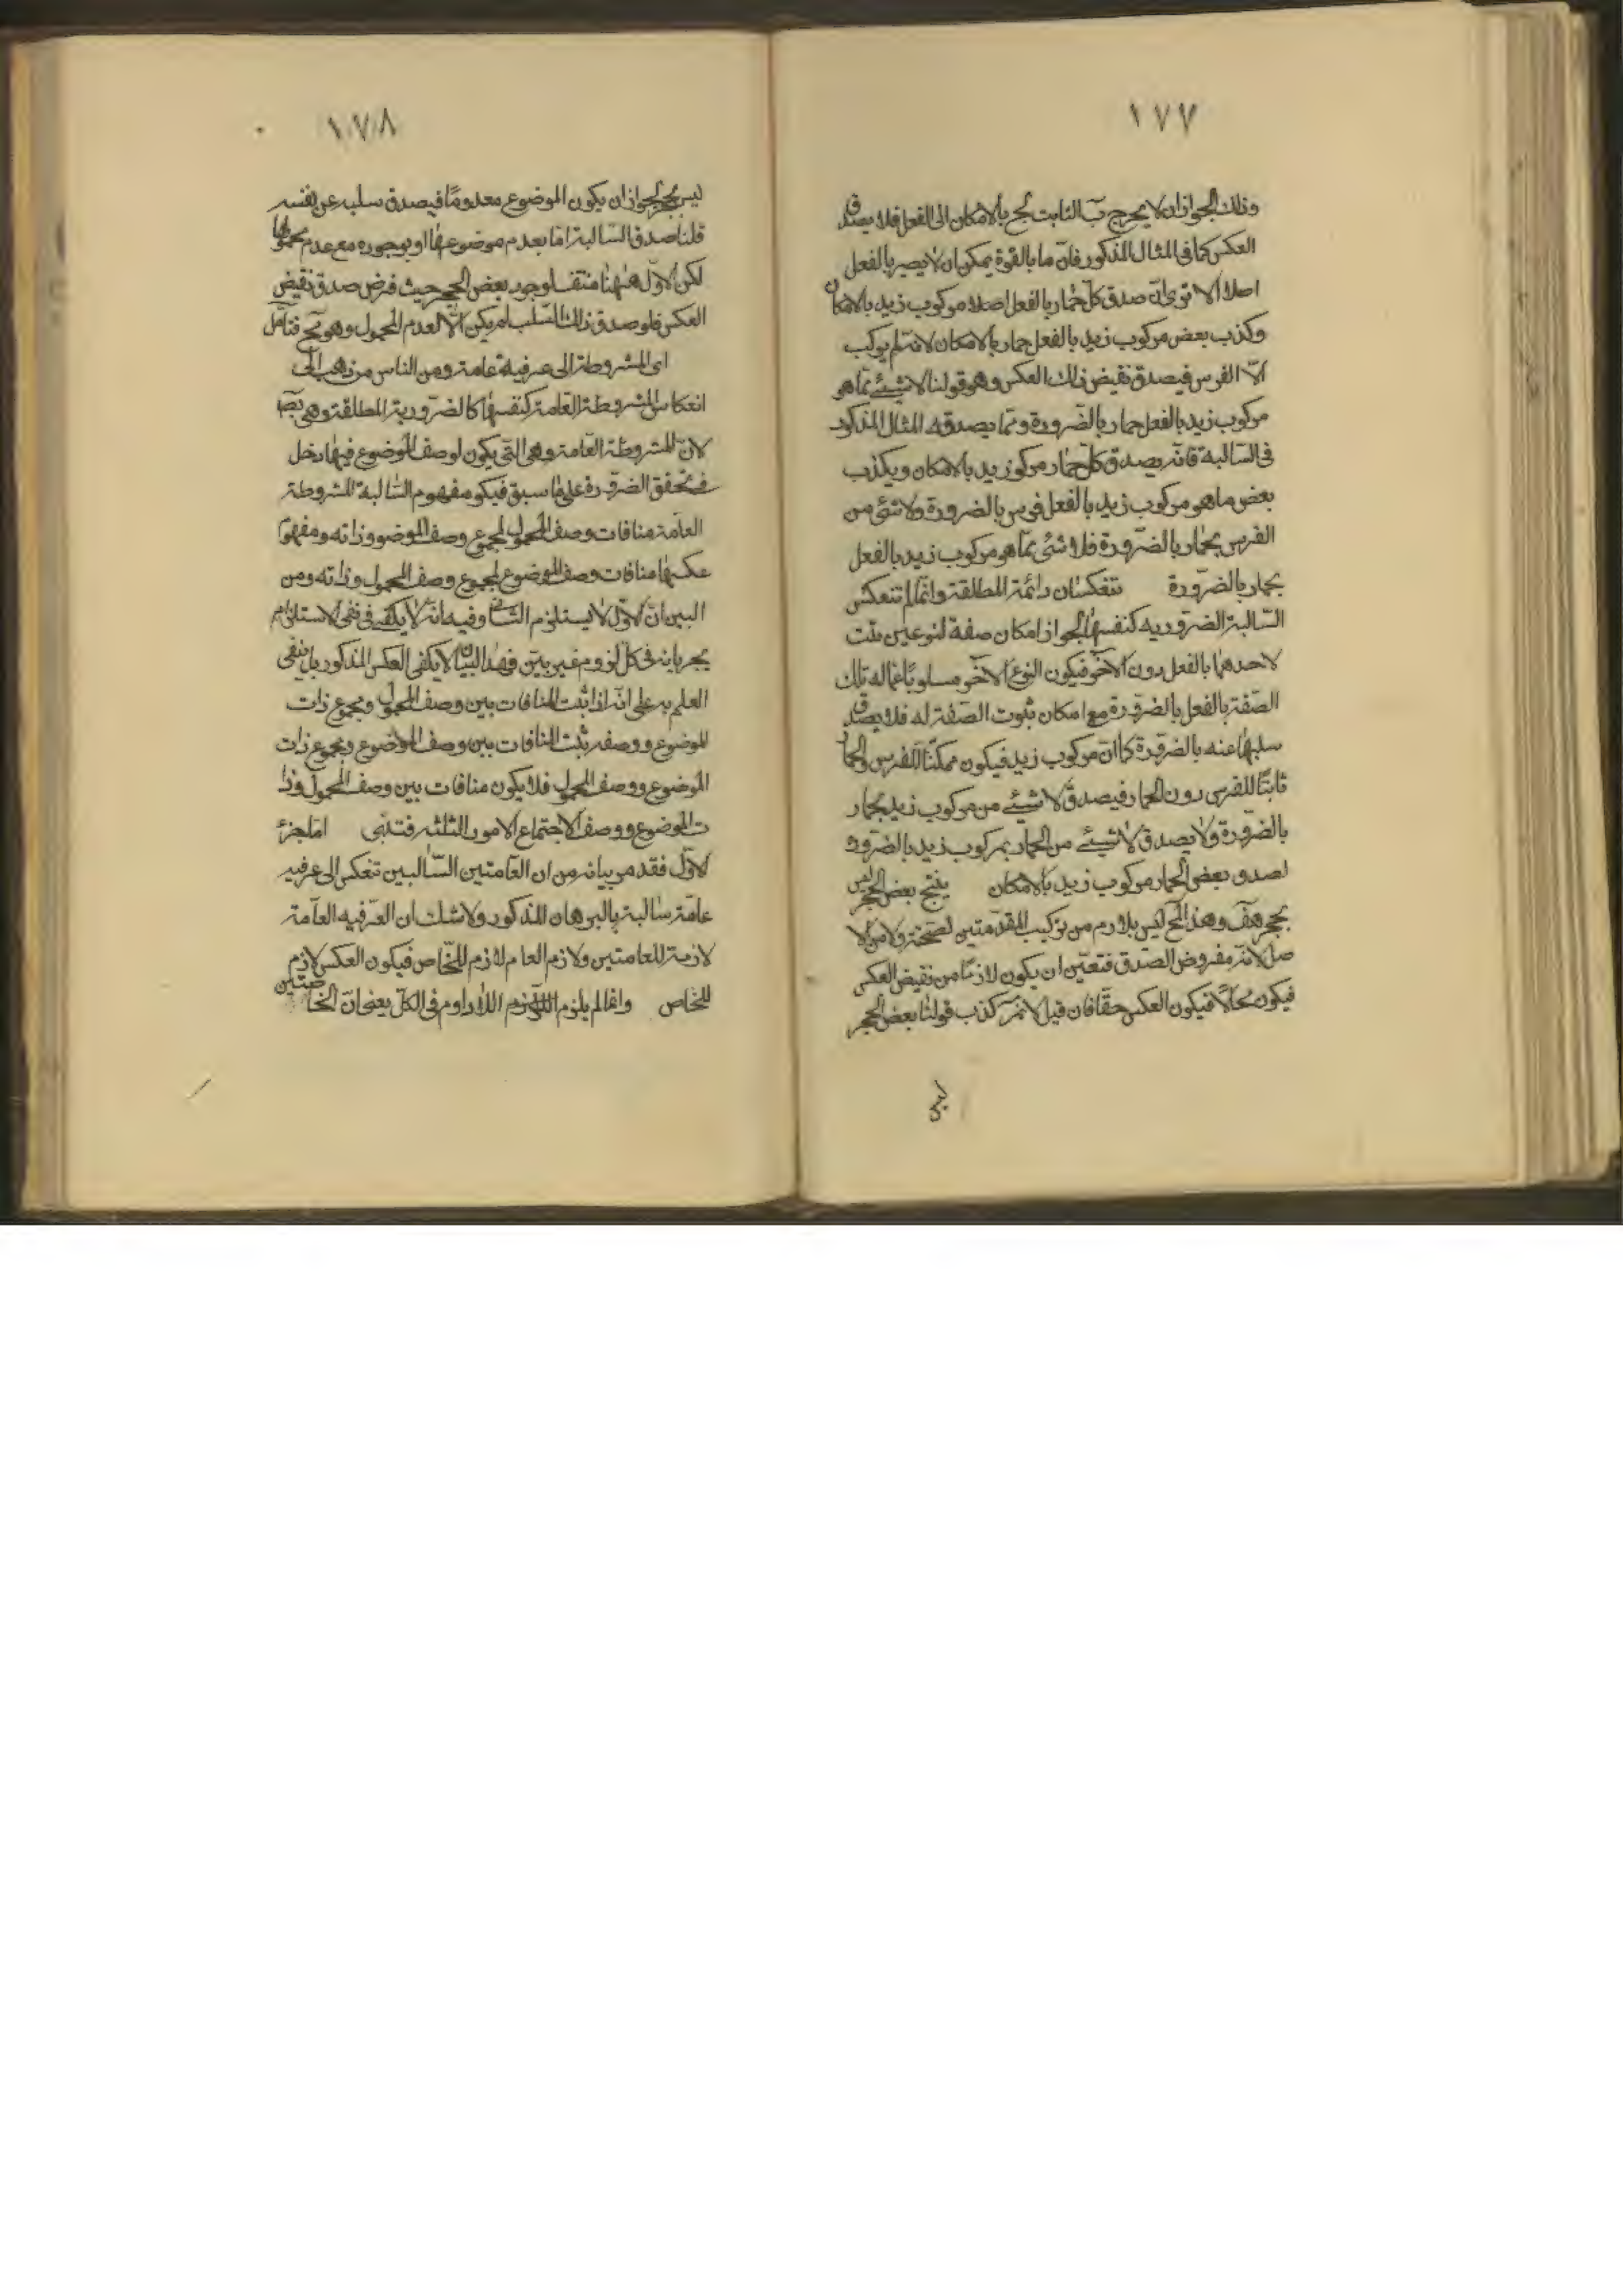 ١٧٧
وذلك لجواز ان لا يخرج ب الثابت لج بالامكان الى الفعل فلا يصدق
العكس كما فى المثال المذكور فانّ ما بالقوة يمكن ان لا يصير بالفعل
اصلا الا ترى انّ صدق كلّ حمار بالفعل اصلا مركوب زيد بالامكان
وكذب بعض مركوب زيد بالفعل حمار بالامكان لانه لم يركب
الّا الفرس فيصدق نقيض ذلك العكس وهو قولنا لا شيئ مما هو
مركوب زيد بالفعل حمار بالضرورة ومما يصدقه المثال المذكور
فى السّالبة فانه يصدق كلّ حمار مركو زيد بالامكان ويكذب
بعض ما هو مركوب زيد بالفعل فرس بالضرورة ولا شئ من
الفرس بحمار بالضّرورة فلا شئ مما هو مركوب زيد بالفعل
بحمار بالضرورة تنعكسان دائمة المطلقة وانّما لم تنعكس
السّالبة الضروريه كنفسها لجواز امكان صفة لنوعين ثبت
لاحدهما بالفعل دون الآخر فيكون النوع الآخر مسلوبا عما له تلك
الصّفة بالفعل بالضرورة مع امكان ثبوت الصّفة له فلا يصدق
سلبها عنه بالضرورة كما انّ مركوب زيد فيكون ممكنا للفرس والحمار
ثابتا للفرس دون الحمار فيصدق لا شيئ من مركوب زيد بحمار
بالضّرورة ولا يصدق لا شيئ من الحمار بمركوب زيد بالضرورة
لصدق بعض الحمار مركوب زيد بالامكان ينتج بعض الحجر ليس
بحجر هف وهذا المح ليس بلازم من تركيب المقدّمتين لصحّته ولا من الا
صل لانه مفروض الصدق فتعيّن ان يكون لازما من نقيض العكس
فيكون محالا فيكون العكس حقّا فان قيل لا نم كذب قولنا بعض الحجر
ليس
١٧٨
ليس بحجر لجواز ان يكون الموضوع معدومًا فيصدق سلبه عن نفسه
قلنا صدق السّالبة امّا بعدم موضوعها او بوجوده مع عدم محمولها
لكن الاوّل هٰهنا منتف لوجود بعض الحجر حيث فرض صدق نقيض
العكس فلو صدق ذلك السّلب لم يكن الّا لعدم المحمول وهو مح فتأمل
اى المشروطة الى عرفية عامة ومن الناس من ذهب الى
انعكاس المشروطة العامة كنفسها كالضرورية المطلقة وهى
لانّ المشروطة العامة وهى التى يكون لوصف الموضوع فيها دخل
فى تحقق الضرورة على ما سبق فيكو مفهوم السّالبة المشروطة
العامّة منافات وصف المحمول لمجموع وصف الموضوع وذاته ومفهوم
عكسها منافات وصف الموضوع لمجموع وصف المحمول وذاته ومن
البين انّ الاوّل لا يستلزم الثانى وفيه انه لا يكفى فى نفى الاستلزام
بجريانه فى كل لزوم غير بيّن فهذا البيان لا يكفى العكس المذكور بل نفى
العلم به على انّه اذا ثبت المنافات بين وصف المحمول ومجموع ذات
الموضوع ووصفه ثبت المنافات بين وصف الموضوع ومجموع ذات
الموضوع ووصف المحمول فلا يكون منافات بين وصف المحمول وذا
ت الموضوع ووصف الاجتماع الامور الثلثة فتدبّر امّا جزء
الاوّل فقد مر بيانه من ان العامتين السّالبتين تنعكس الى عرفيه
عامّة سالبة بالبرهان المذكور ولا شك ان العرفيه العامّة
لازمة للعامتين ولازم العام لازم للخّاص فيكون العكس لازم
للخاص وانما لم يلزم اللّادوام فى الكلّ يعنى انّ الخاصتين